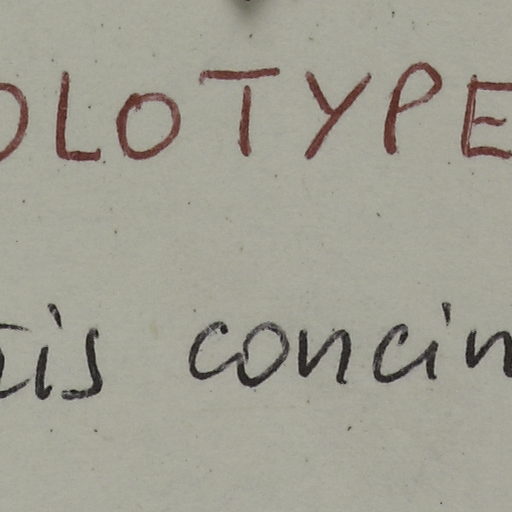 OLOTYPE
is concin